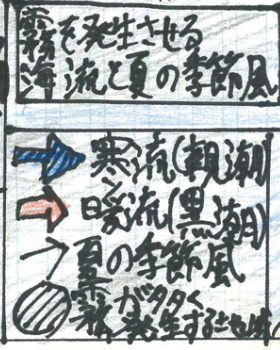 霧を発生させる
海流と夏の季節風
寒流(親潮)
暖流(黒潮)
夏の季節風
霧が多く発生する地域